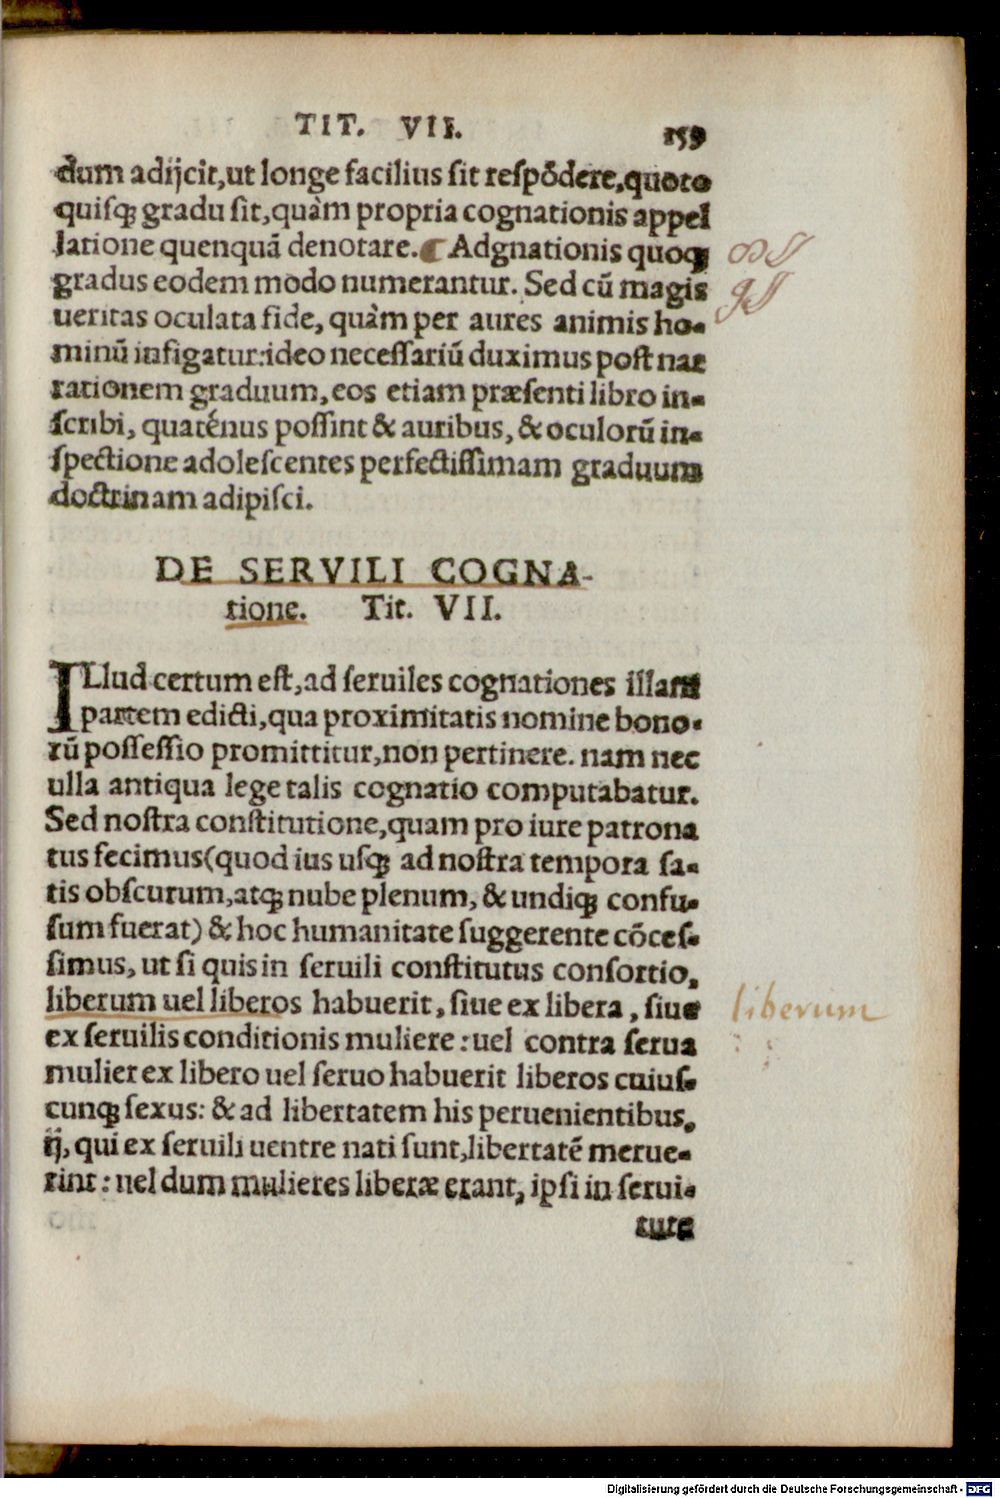 TIT. VII. 159
dum adijcit, ut longe facilius sit respõdere, quoto
quisq; gradu sit, quàm propria cognationis appel
latione quenquã denotare. ¶ Adgnationis quoq;
gradus eodem modo numerantur. Sed cũ magis
ueritas oculata fide, quàm per aures animis ho-
minũ infigatur: ideo necessariũ duximus post nar
rationem graduum, eos etiam præsenti libro in-
scribi, quaténus possint & auribus, & oculorũ in-
spectione adolescentes perfectissimam graduum
doctrinam adipisci.
DE SERVILI COGNA-
tione. Tit. VII.
ILlud certum est, ad seruiles cognationes illam
partem edicti, qua proximitatis nomine bono-
rũ possessio promittitur, non pertinere. nam nec
ulla antiqua lege talis cognatio computabatur.
Sed nostra constitutione, quam pro iure patrona
tus fecimus (quod ius usq; ad nostra tempora sa-
tis obscurum, atq; nube plenum, & undiq; confu-
sum fuerat) & hoc humanitate suggerente cõces-
simus, ut si quis in seruili constitutus consortio,
liberum uel liberos habuerit, siue ex libera, siue
liberum
ex seruilis conditionis muliere: uel contra serua
mulier ex libero uel seruo habuerit liberos cuius-
cunq; sexus: & ad libertatem his peruenientibus,
ij, qui ex seruili uentre nati sunt, libertatẽ merue-
rint: uel dum mulieres liberæ erant, ipsi in serui-
tute
Digitalisierung gefördert durch die Deutsche Forschungsgemeinschaft - DFG